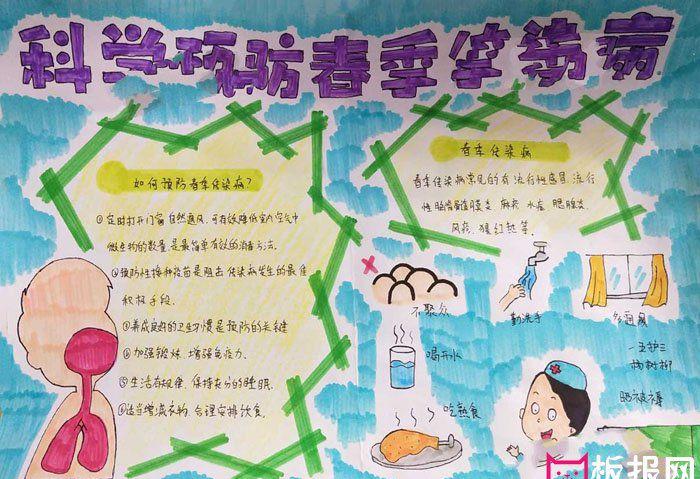 科学预防春季传染病
如何预防春季传染病?
①定时打开门窗自然通风,可有效降低室内空气中
微生物的数量,是最简单有效的消毒方法.
②预防性接种疫苗是阻击传染病发生的最佳
积极手段.
③养成良好的卫生习惯是预防的关键
④加强锻炼,增强免疫力.
⑤生活有规律,保持充分的睡眠.
⑥适当增减衣物,合理安排饮食.
春季传染病
春季传染病常见的有流行性感冒、流行
性脑脊髓膜炎、麻疹、水痘、腮腺炎
风疹、猩红热等.
不聚众
勤洗手
多通风
喝开水
吃熟食
晒被褥
板报网